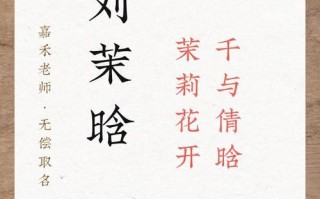 千与倩晗
茉莉花开
刘茉晗
嘉禾老师·无偿取名